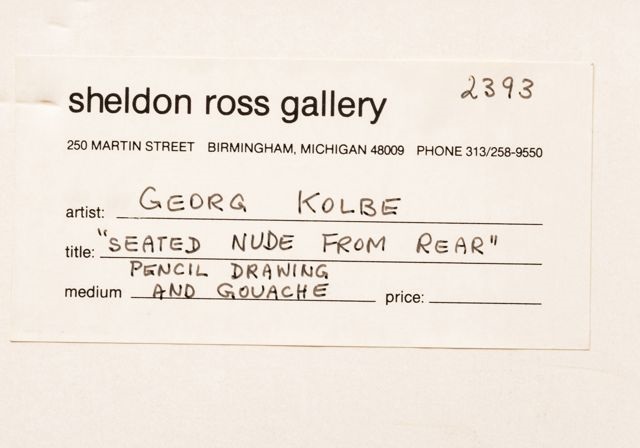 2393
sheldon ross gallery
250 MARTIN STREET BIRMINGHAM, MICHIGAN 48009 PHONE 313/258-9550
artist: GEORG KOLBE
title: "SEATED NUDE FROM REAR"
PENCIL DRAWING
medium AND GOUACHE price: